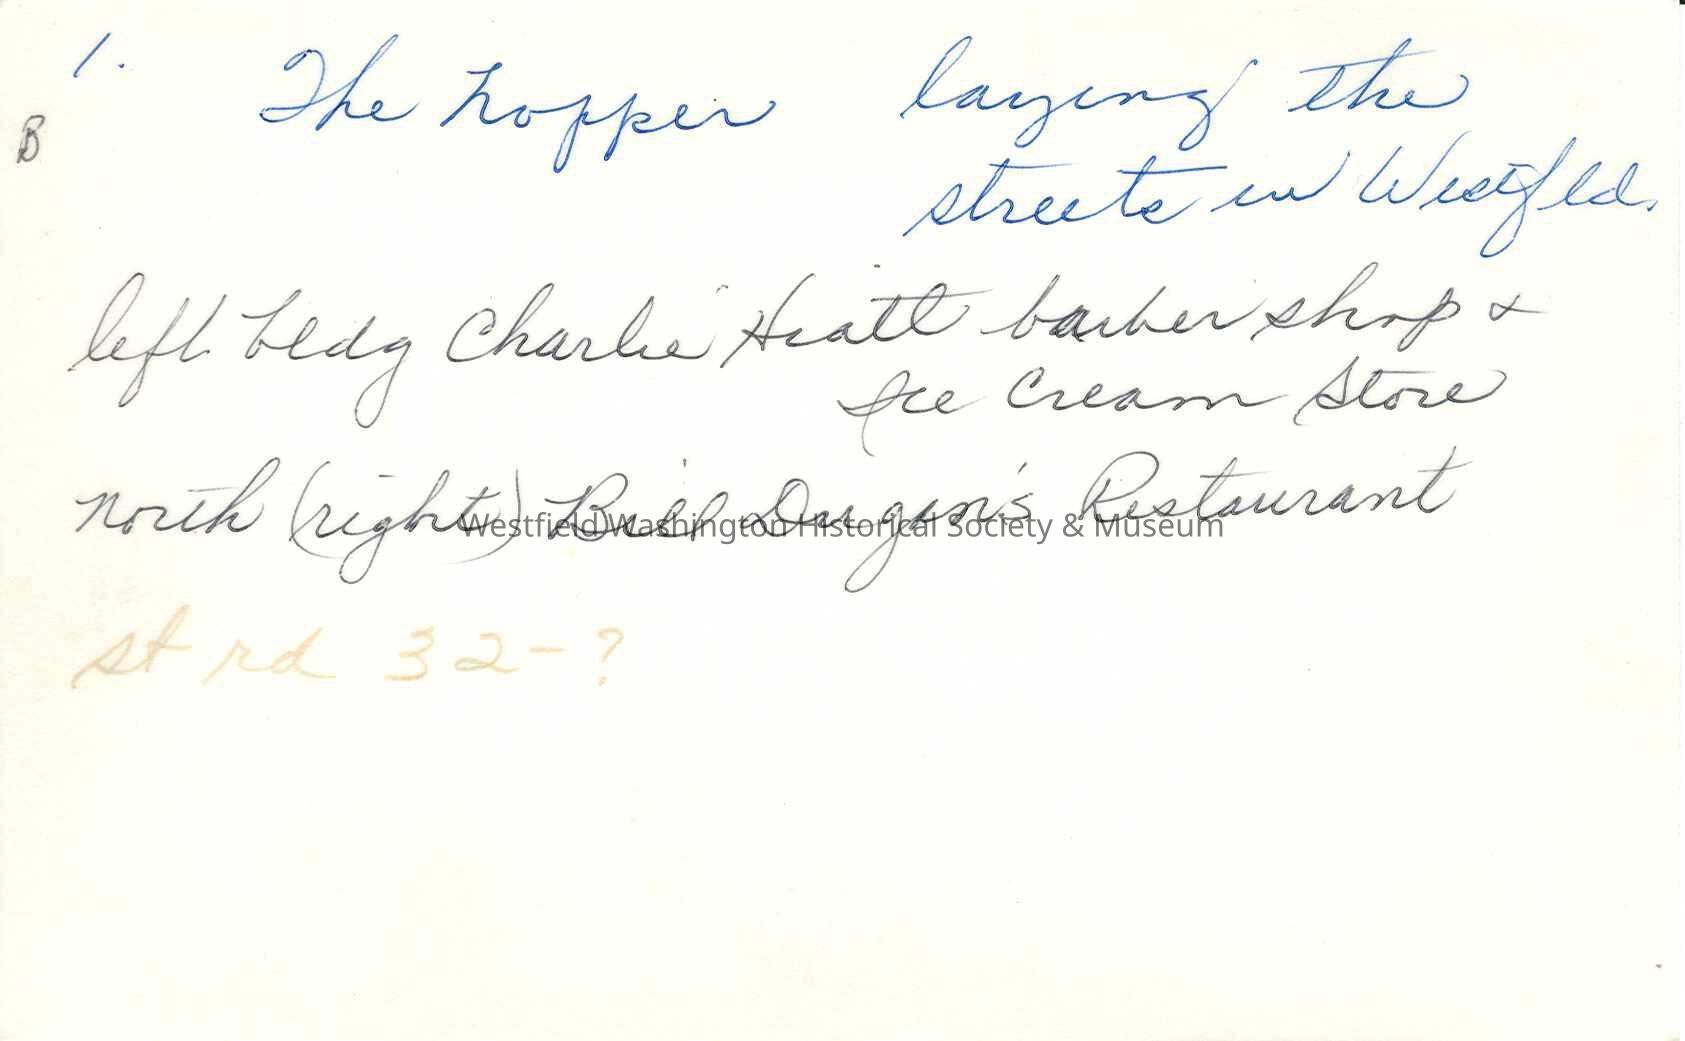 1. The hopper laying the
B
streets in Westfld.
left bldg Charlie Hiatt barber shop &
Ice Cream Store
North (right) Bill Dugan's Restaurant
Westfield Washington Historical Society & Museum
st rd 32-?